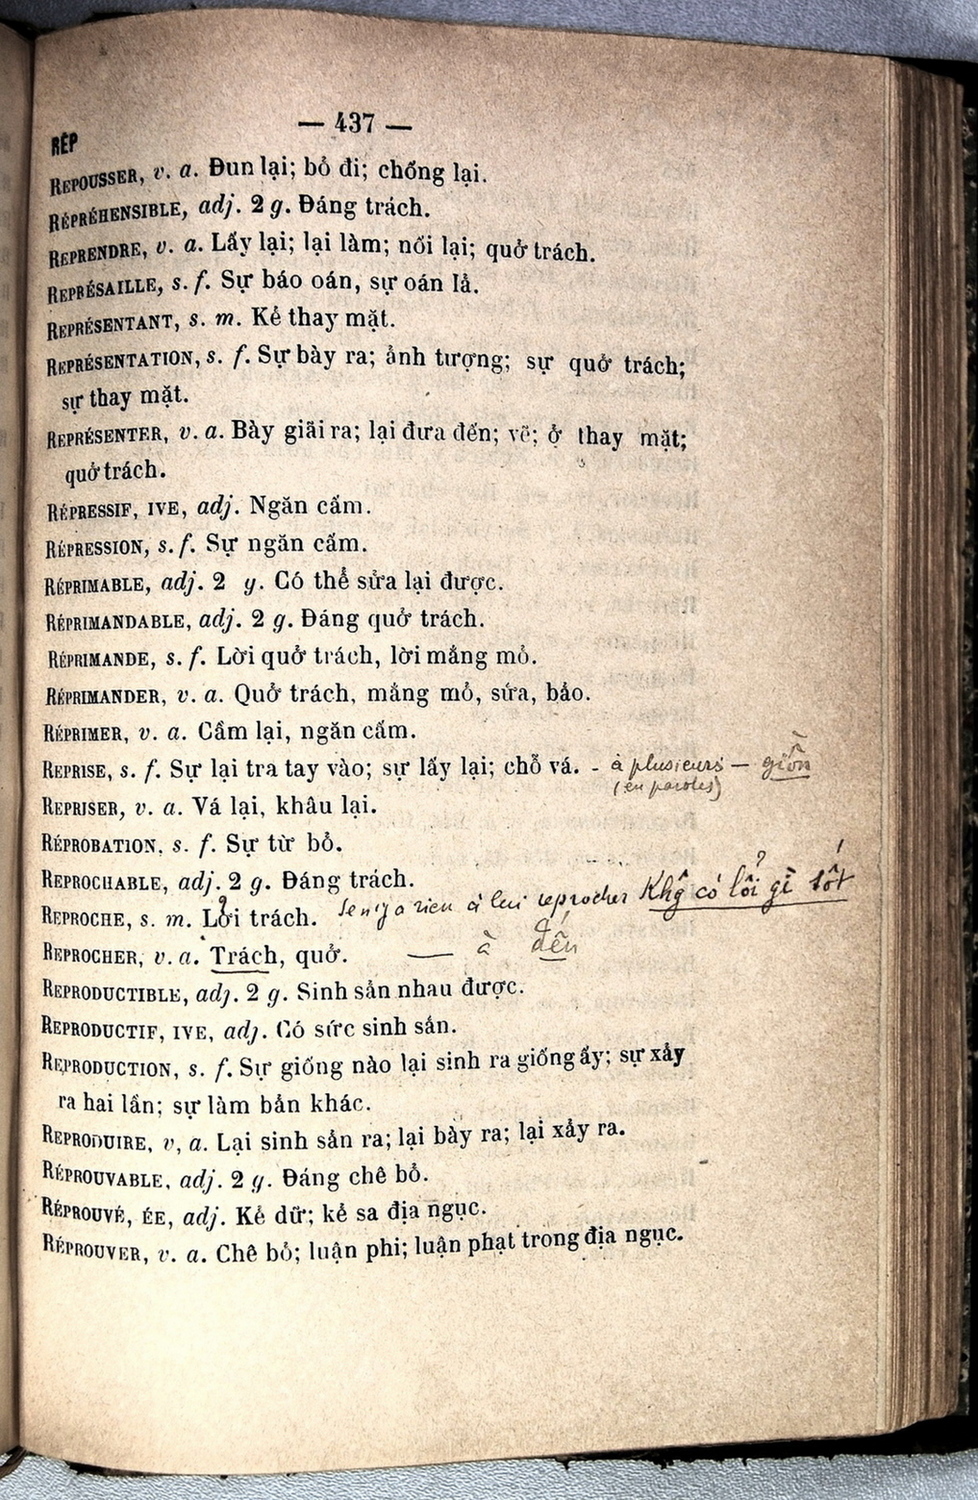 — 437 —
RÉP
REPOUSSER, v. a. Đun lại; bỏ đi; chống lại.
RÉPRÉHENSIBLE, adj. 2 g. Đáng trách.
REPRENDRE, v. a. Lấy lại; lại làm; nối lại; quở trách.
REPRÉSAILLE, s. f. Sự báo oán, sự oán lả.
REPRÉSENTANT, s. m. Kẻ thay mặt.
REPRÉSENTATION, s. f. Sự bày ra; ảnh tượng; sự quở trách;
sự thay mặt.
REPRÉSENTER, v. a. Bày giãi ra; lại đưa đến; vẽ; ở thay mặt;
quở trách.
RÉPRESSIF, IVE, adj. Ngăn cấm.
RÉPRESSION, s. f. Sự ngăn cấm.
RÉPRIMABLE, adj. 2 g. Có thể sửa lại được.
RÉPRIMANDABLE, adj. 2 g. Đáng quở trách.
RÉPRIMANDE, s. f. Lời quở trách, lời mắng mỏ.
RÉPRIMANDER, v. a. Quở trách, mắng mỏ, sứa, bảo.
RÉPRIMER, v. a. Cầm lại, ngăn cấm.
REPRISE, s. f. Sự lại tra tay vào; sự lấy lại; chỗ vá. - à plusieurs — giồn
(en paroles)
REPRISER, v. a. Vá lại, khâu lại.
RÉPROBATION, s. f. Sự từ bỏ.
REPROCHABLE, adj. 2 g. Đáng trách.
REPROCHE, s. m. Lời trách. rien à lui reprocher Khg có lỗi gì tốt
REPROCHER, v. a. Trách, quở. — à đến
REPRODUCTIBLE, adj. 2 g. Sinh sản nhau được.
REPRODUCTIF, IVE, adj. Có sức sinh sản.
REPRODUCTION, s. f. Sự giống nào lại sinh ra giống ấy; sự xảy
ra hai lần; sự làm bản khác.
REPRODUIRE, v, a. Lại sinh sản ra; lại bày ra; lại xảy ra.
RÉPROUVABLE, adj. 2 g. Đáng chê bỏ.
RÉPROUVÉ, ÉE, adj. Kẻ dữ; kẻ sa địa ngục.
RÉPROUVER, v. a. Chê bỏ; luận phi; luận phạt trong địa ngục.